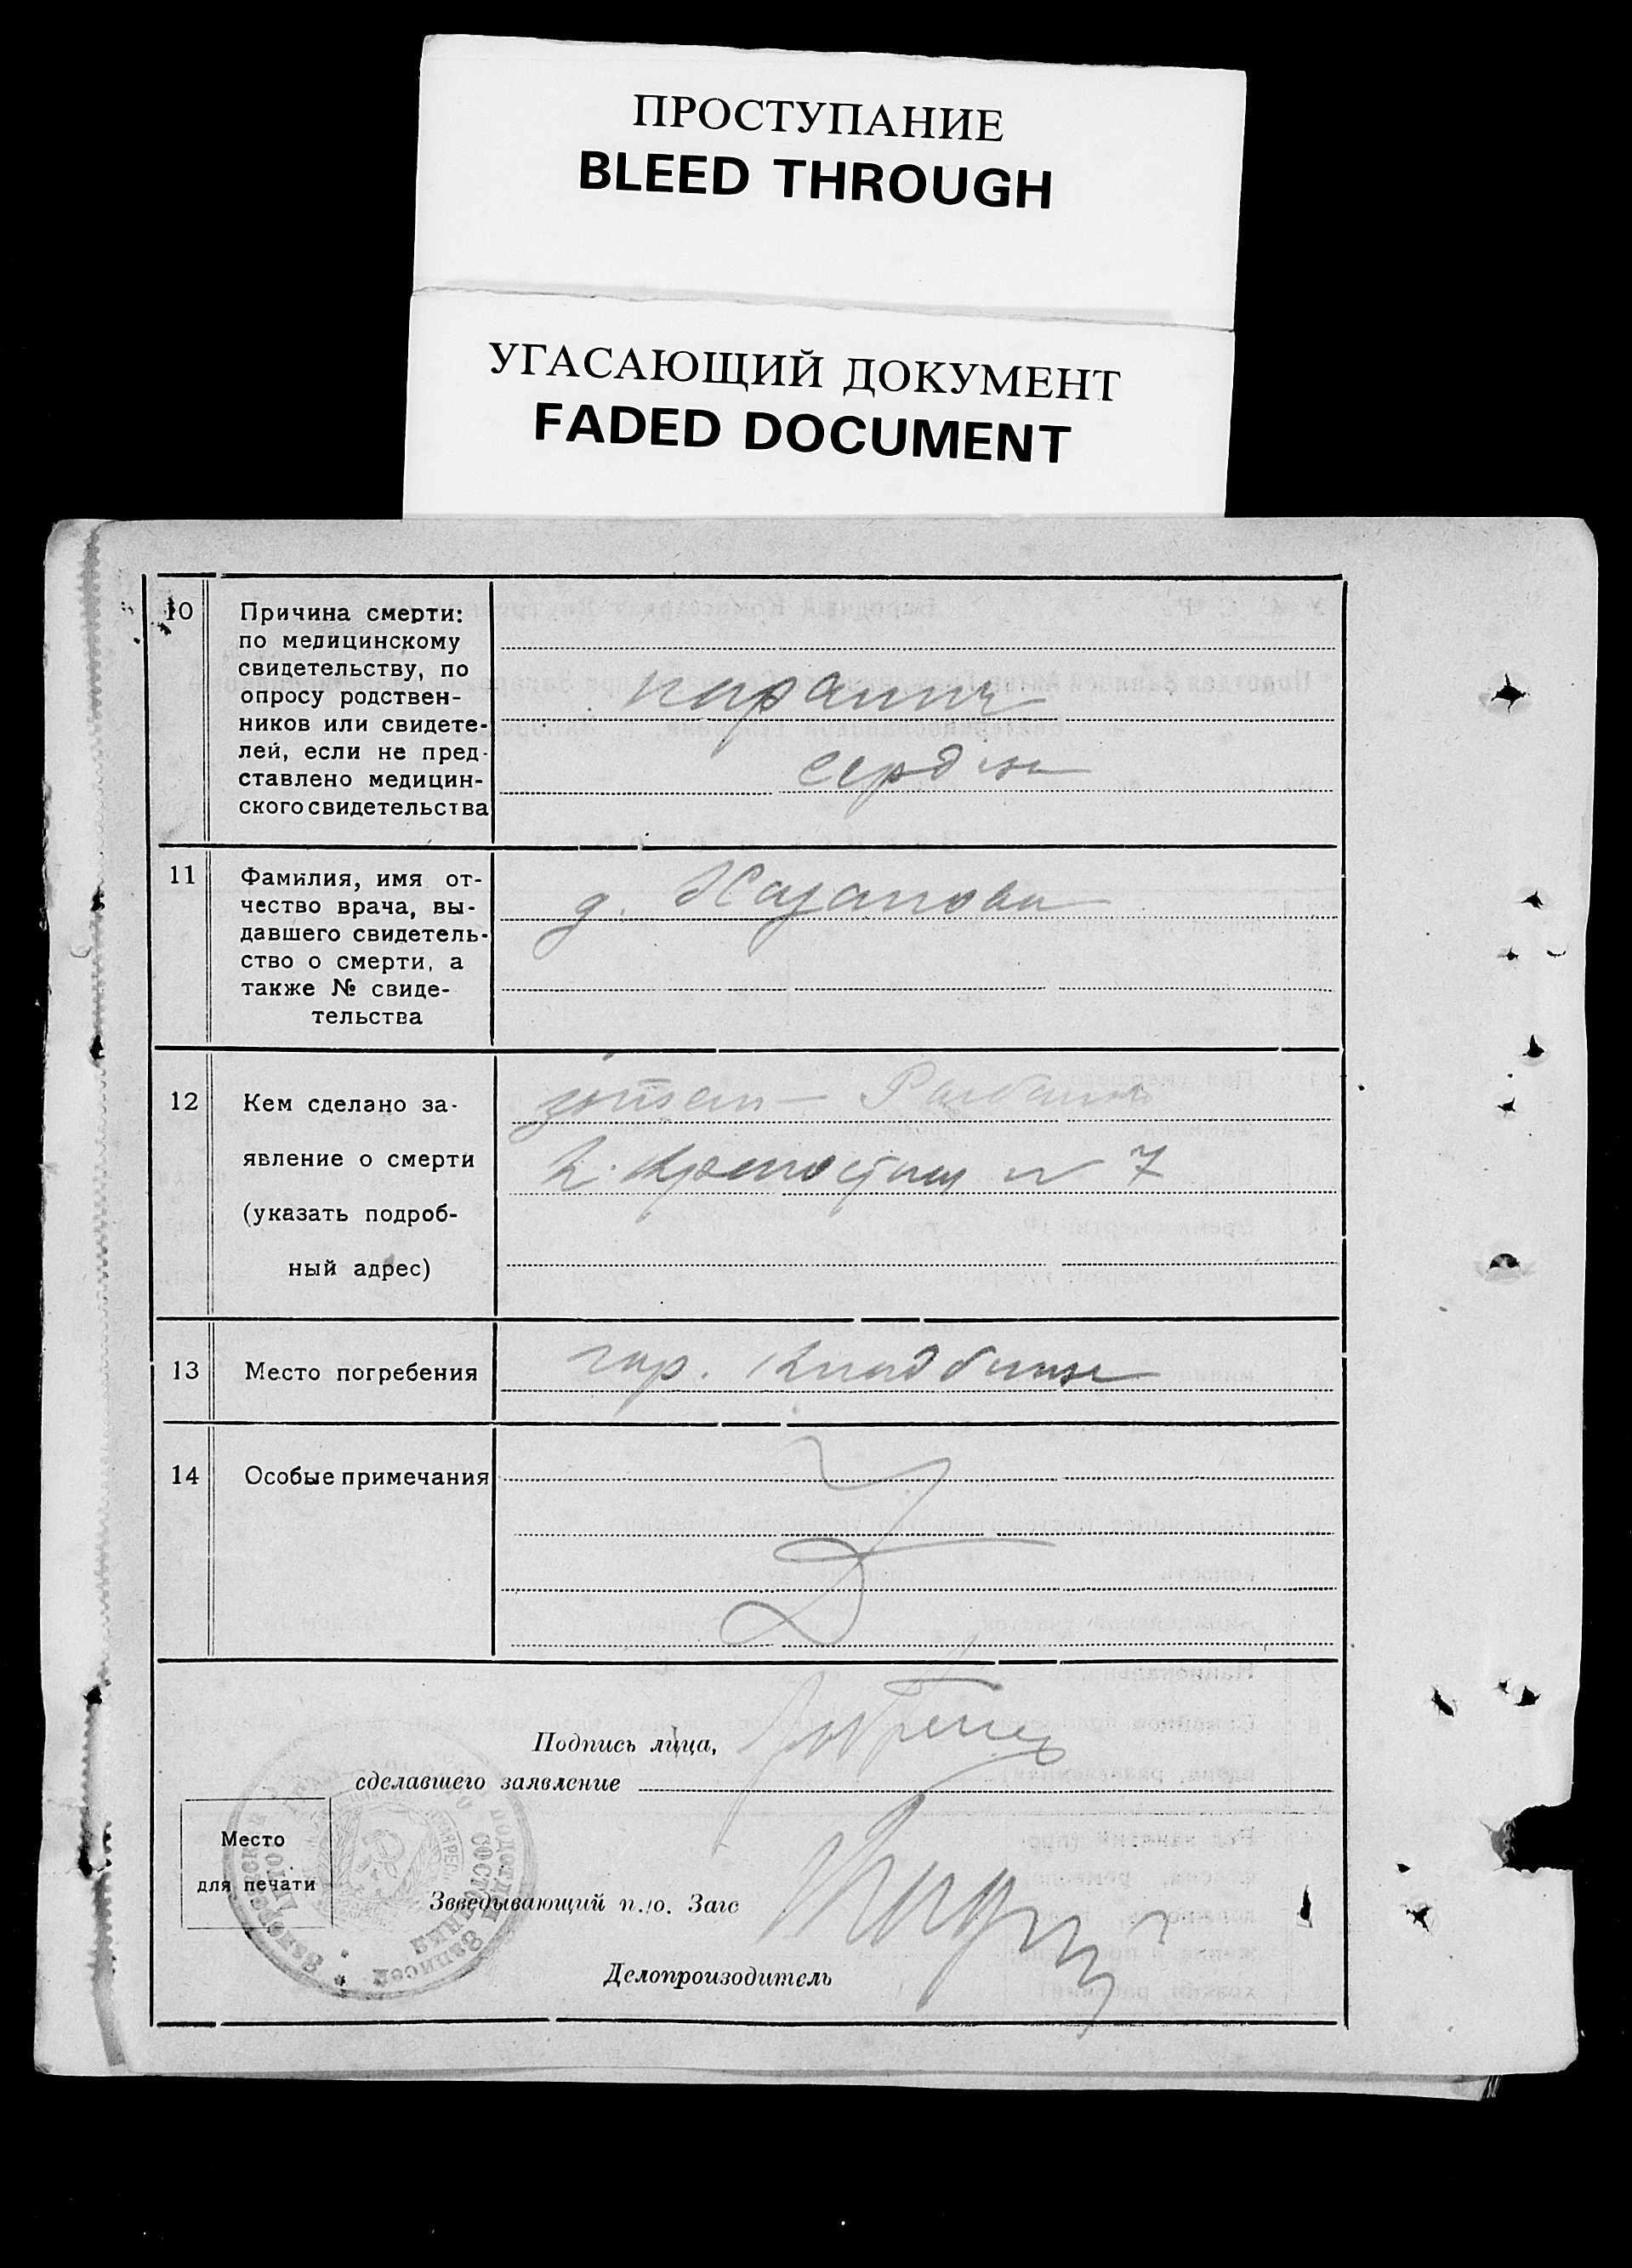 ПРОСТУПАНИЕ
BLEED THROUGH
УГАСАЮЩИЙ ДОКУМЕНТ
FADED DOCUMENT
10
Причина смерти:
по медицинскому
свидетельству, по
опросу родствен-
ников или свидете-
лей, если не пред-
ставлено медицин-
ского свидетельства
паралич
сердца
11
Фамилия, имя от-
чество врача, вы-
давшего свидетель-
ство о смерти, а
также № свиде-
тельства
12
Кем сделано за-
явление о смерти
(указать подроб-
ный адрес)
№ 7
13
Место погребения
гор. кладбище
14
Особые примечания
Подпись лица,
сделавшего заявление
Место
для печати
Зведывающий п./о. Загс
Делопроизодитель